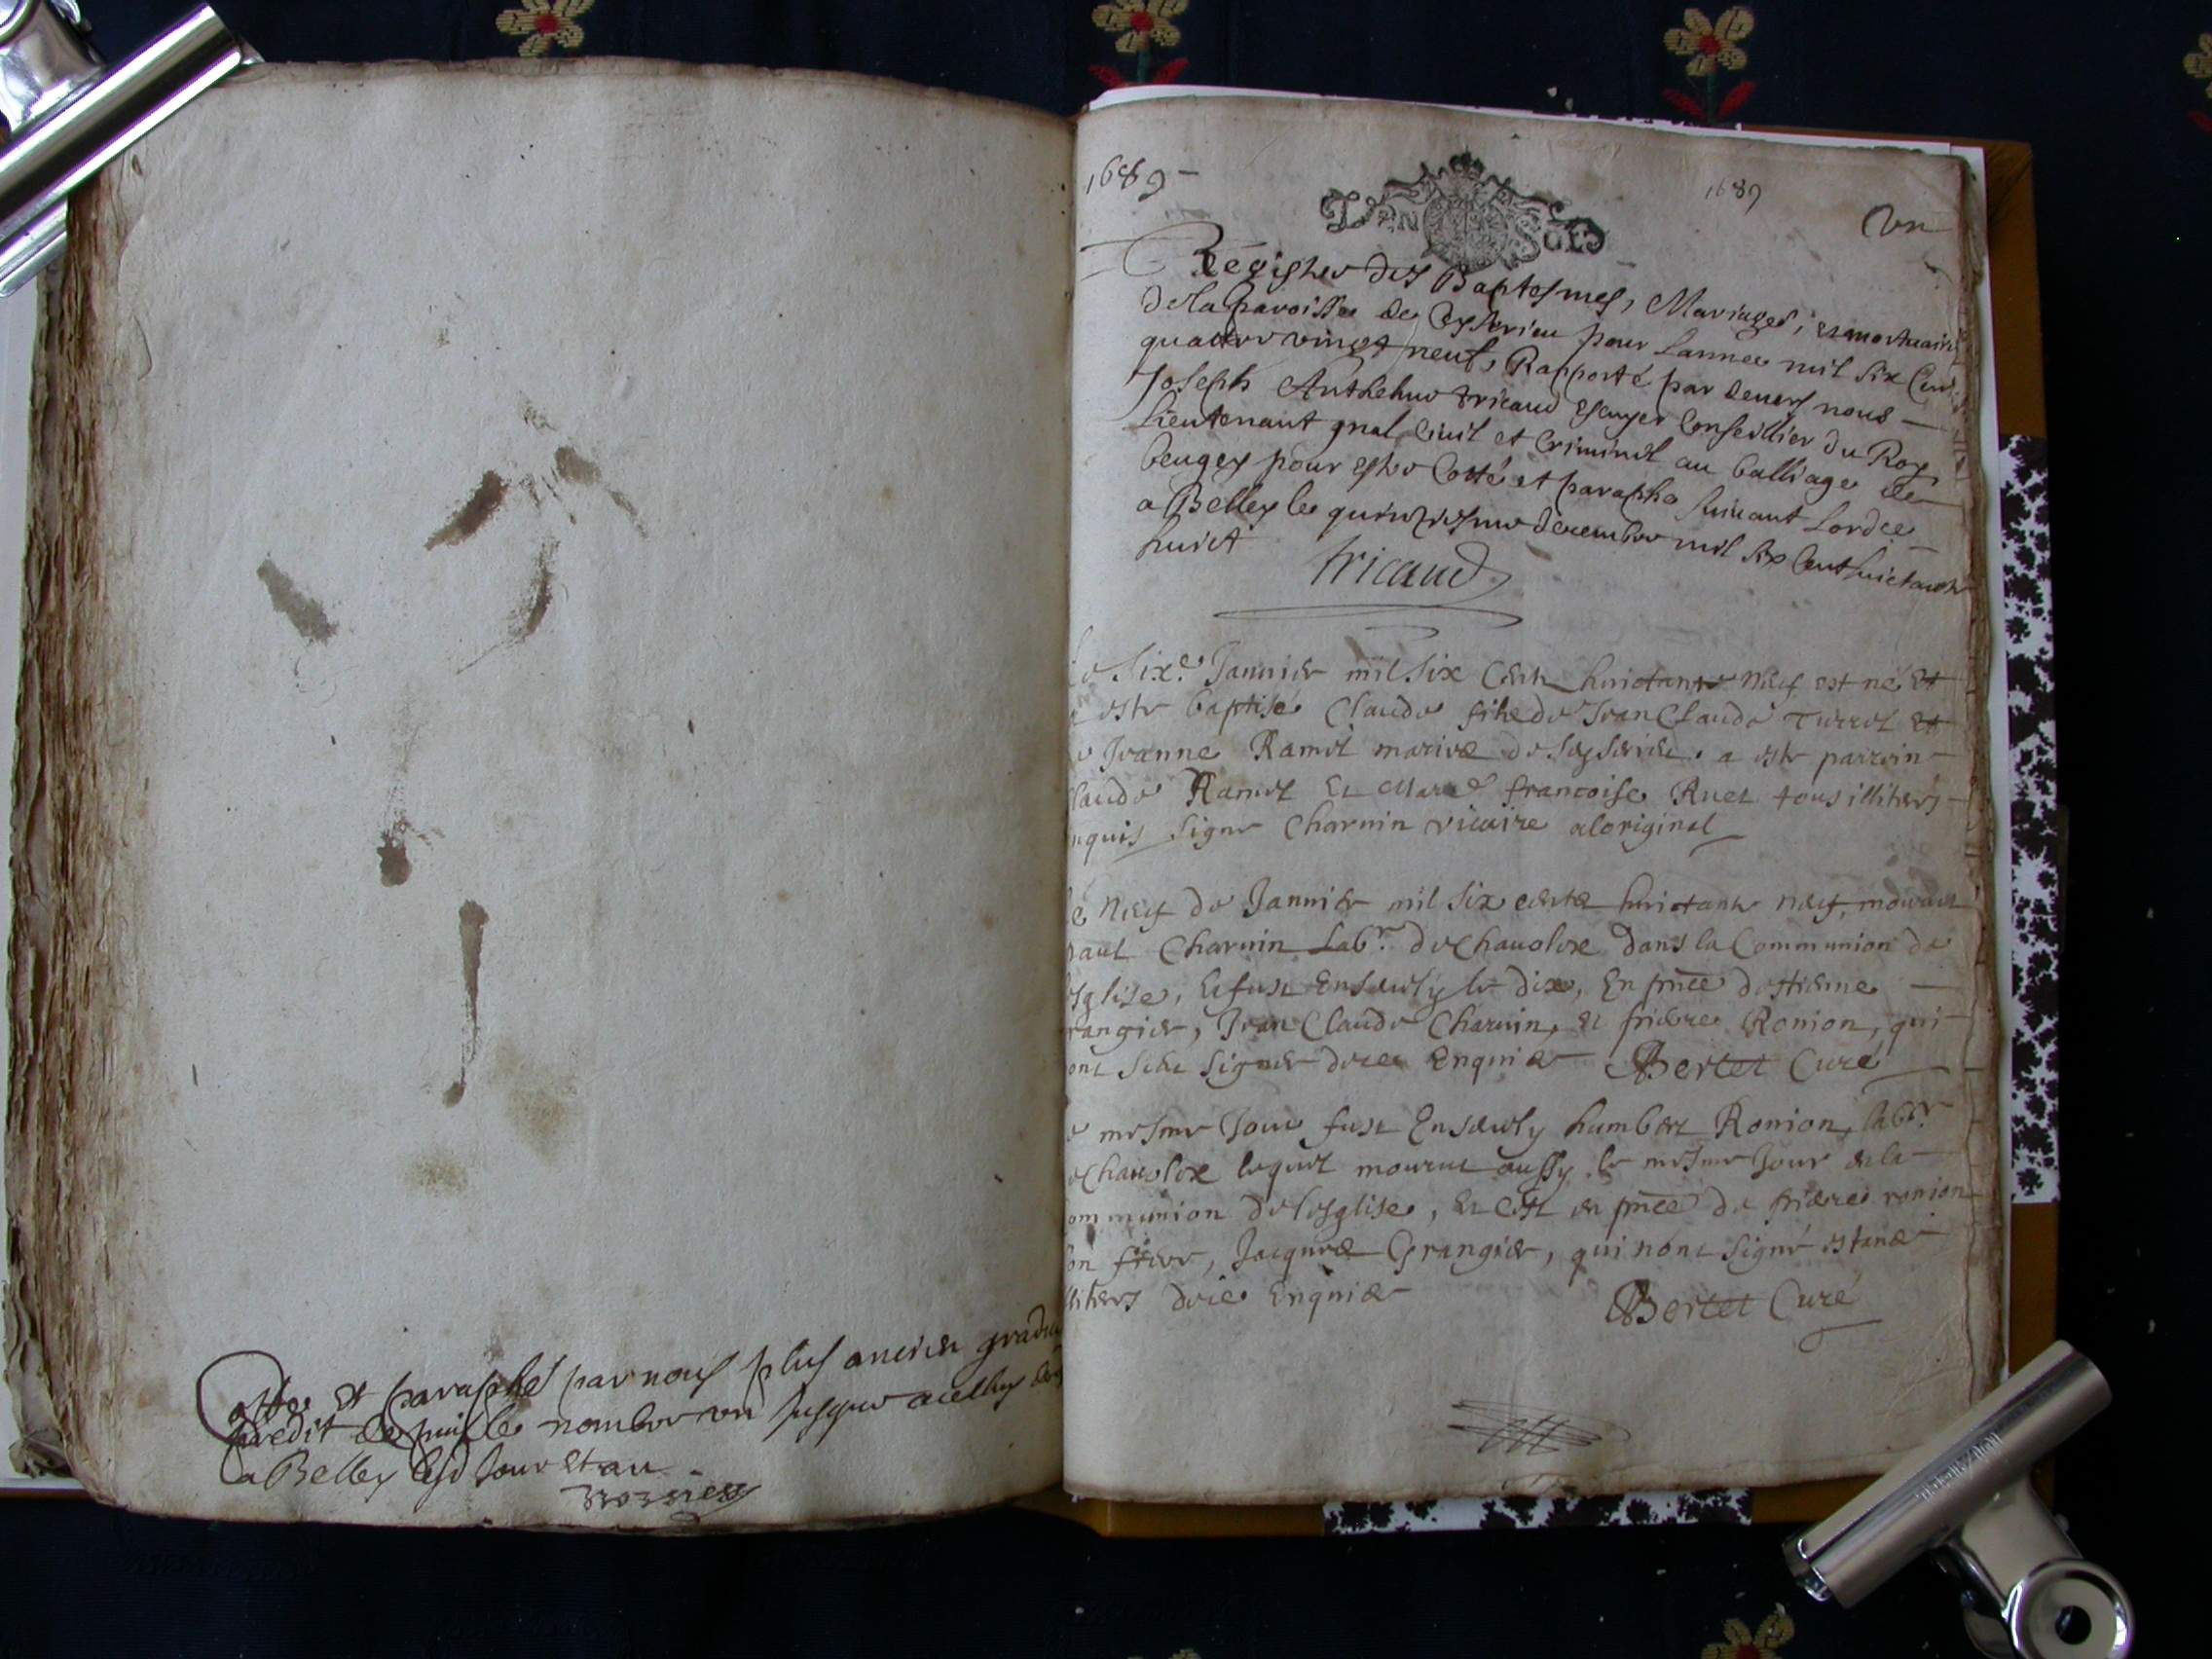 Cottée et paraphé par nous plus ancien gradué
predit depuis le nombre un jusques a celluy de
a Belley lesd jour et an
1689 -
1689
un
Registre des Baptesmes, Mariages, et mortuaires
de la paroisse de Ceyserieu pour lannee mil six Cent
quattre vingt neuf, Rapporté par devers nous -
Joseph Anthelme tricaud escuyer Conseillier du Roy
Lieutenant gnal Civil et Criminel au balliage de
beugey pour estre Cotté et paraphé suivant lordce
a Belley le quinziesme decembre mil six Cent huictante
huict
tricaud
Le Sixe. Janvier mil six Cent huictante neuf est né et
a este baptisé Claude fils de Jean Claude et
de Jeanne Ramel mariez de Seyserieu. a este parrein
Claude Ramel et Marre francoise Ruet tous illiters
enquis signe Charvin vicaire a loriginal
le neuf de Janvier mil six cents huictante neuf, mourut
paul Charvin Labr. de Chavolex dans la Communion de
lesglise, et fust Ensevely le dix, En pnce dottieme
Grangier, Jean Claude Charvin, et Ronion, qui
ont sceu signer de ce Enquis Bertet Curé
le mesme Jour fust Ensevely humbert Ronion, labr
de Chavolex lequel mourut aussy le mesme Jour en la
communion de lesglise, et Cest en pnce de ronion
son frere, Jacques Grangier, qui nont signé estans
illiters de ce Enquis Bertet Curé